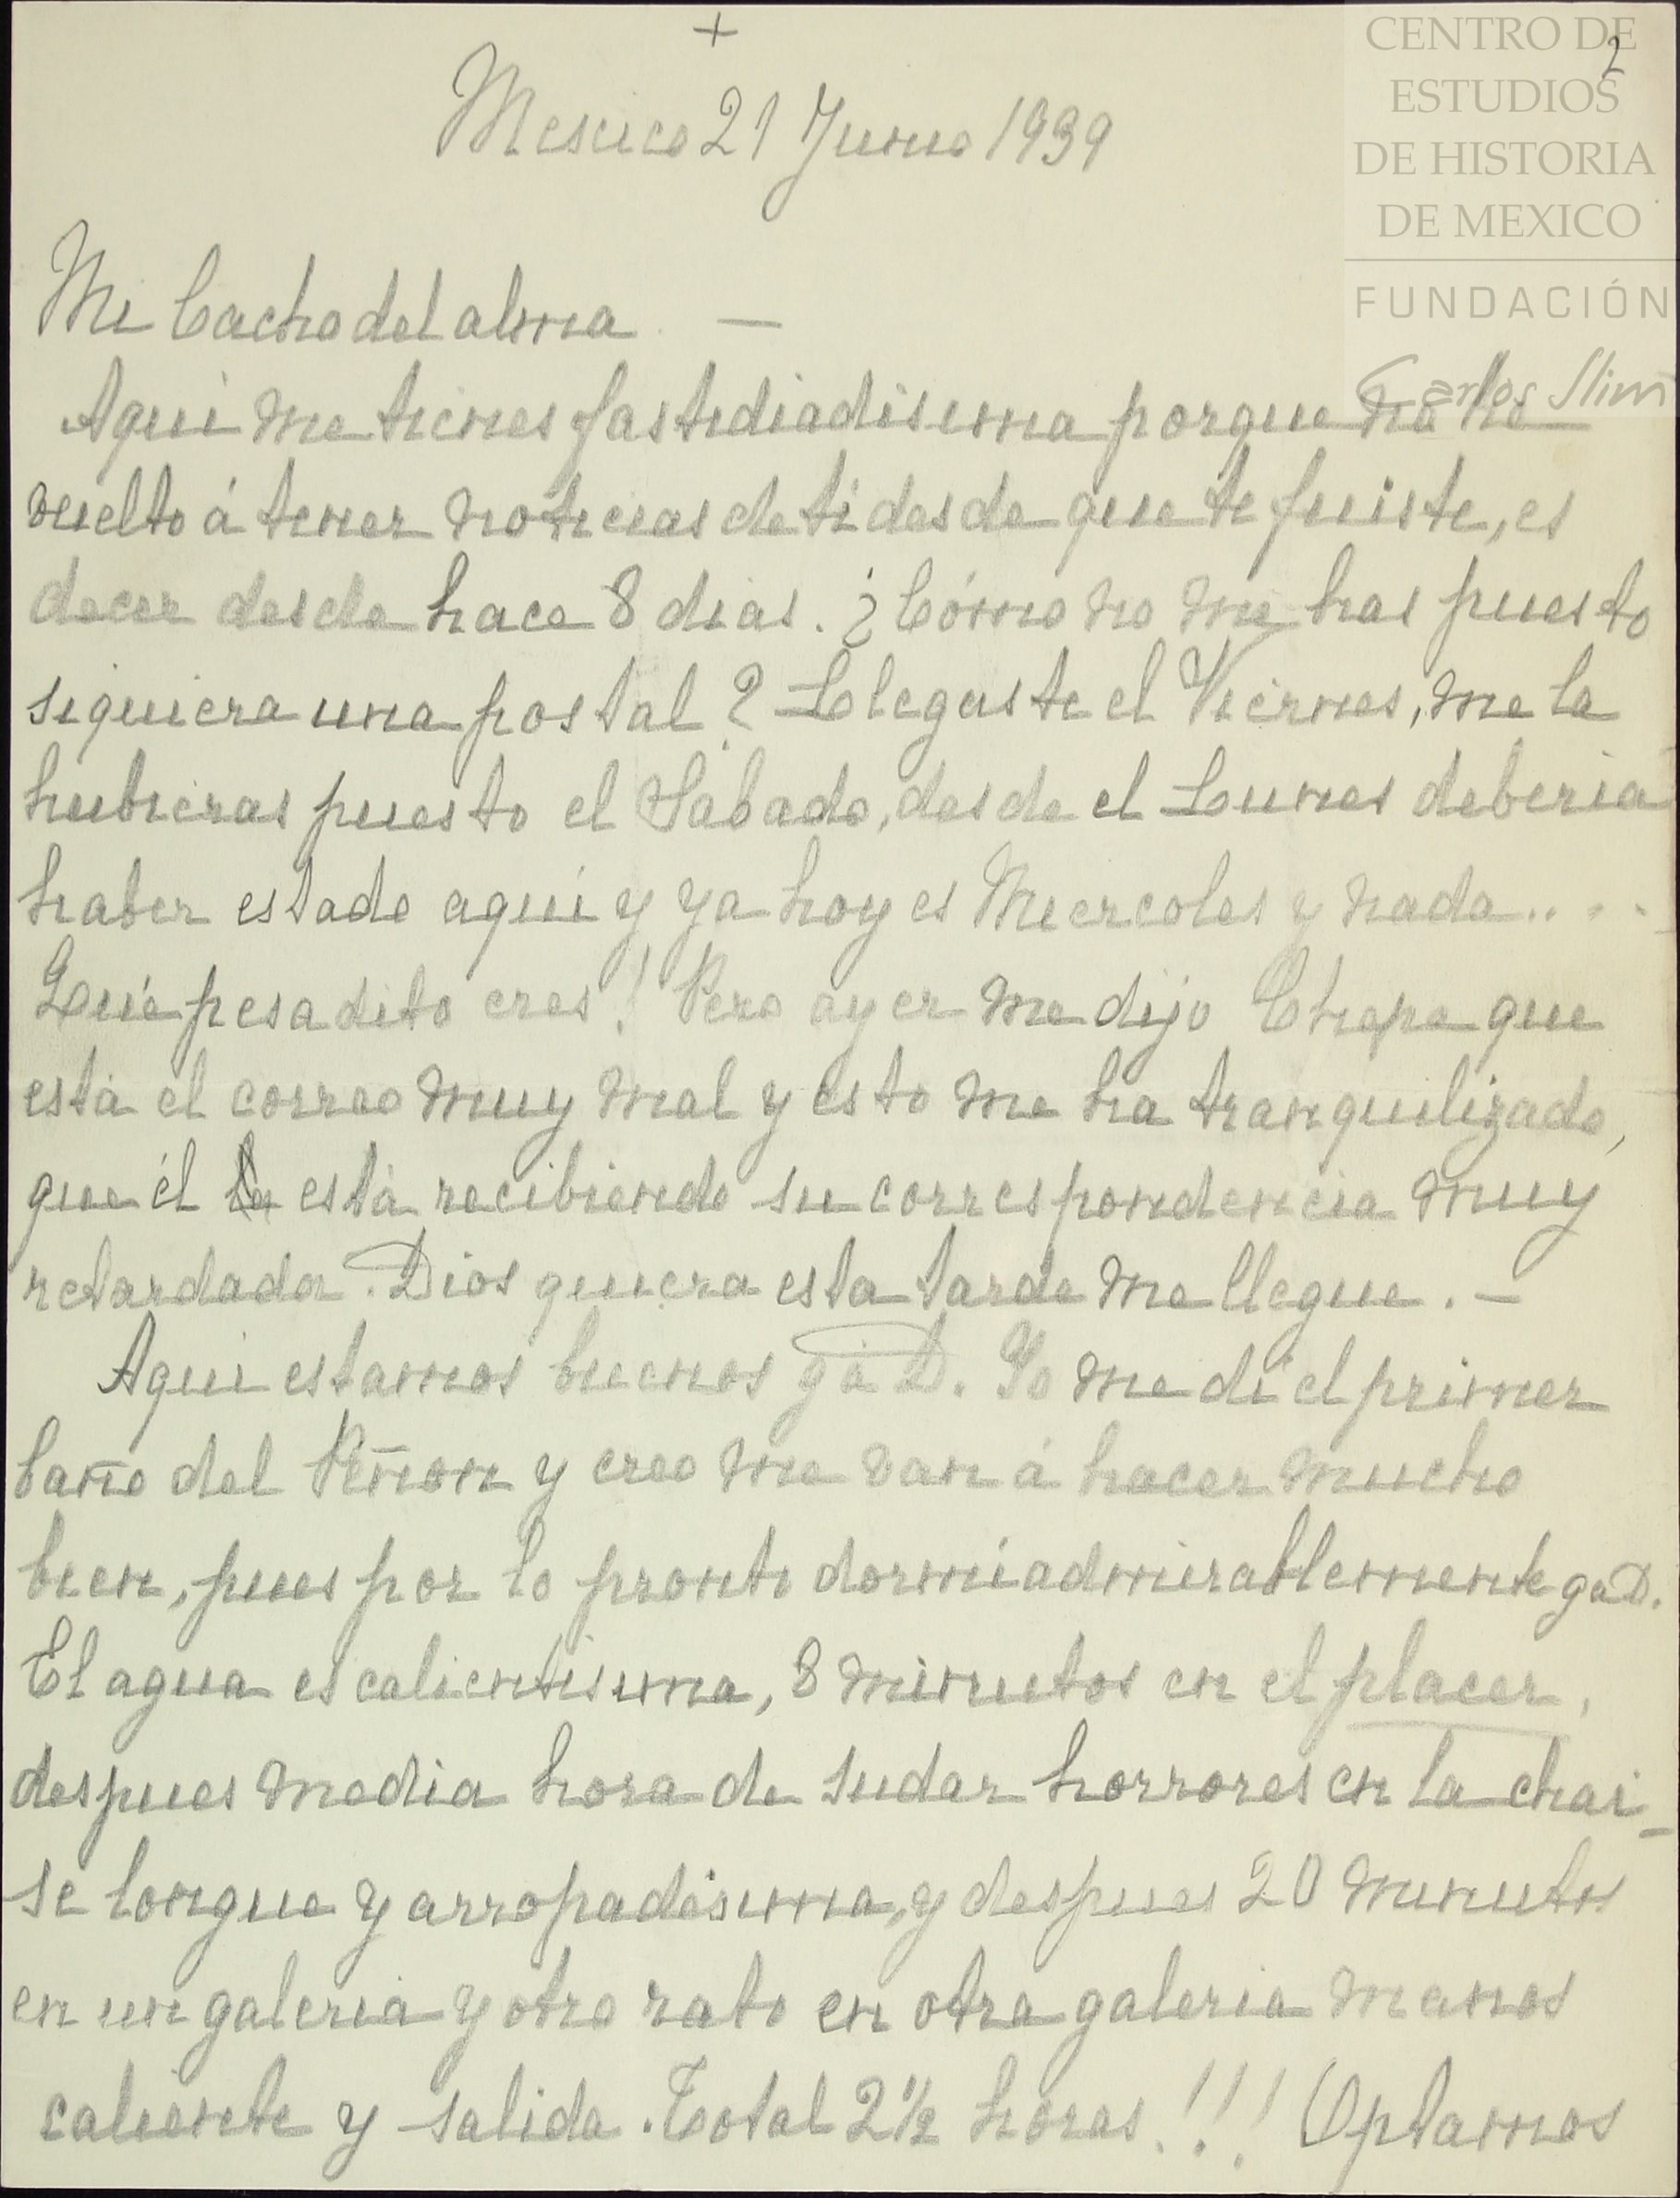 +
CENTRO DE
2
ESTUDIOS
DE HISTORIA
DE MEXICO
FUNDACIÓN
Carlos Slim
Mexico 21 Junio 1939
Mi Cacho del alma —
Aqui me tienes fastidiadisima porque no he
vuelto á tener noticias de ti desde que te fuiste, es
decir desde hace 8 dias. ¿Cómo no me has puesto
siquiera una postal? Llegaste el Viernes, me la
hubieras puesto el Sábado, desde el Lunes deberia
haber estado aqui y ya hoy es Miercoles y nada....
Qué pesadito eres! Pero ayer me dijo Chepe que
está el correo muy mal y esto me ha tranquilizado,
que él está recibiendo su correspondencia muy
retardada. Dios quiera esta tarde me llegue. —
Aqui estamos buenos g á D. Yo me di el primer
baño del Peñon y creo me van á hacer mucho
bien, pues por lo pronto dormí admirablemente g a D.
El agua es calientisima, 8 minutos en el placer,
despues media hora de sudar horrores en la chai-
se longue y arropadisima, y despues 20 minutos
en un galeria y otro rato en otra galeria menos
caliente y salida. Total 2½ horas!!! Optamos